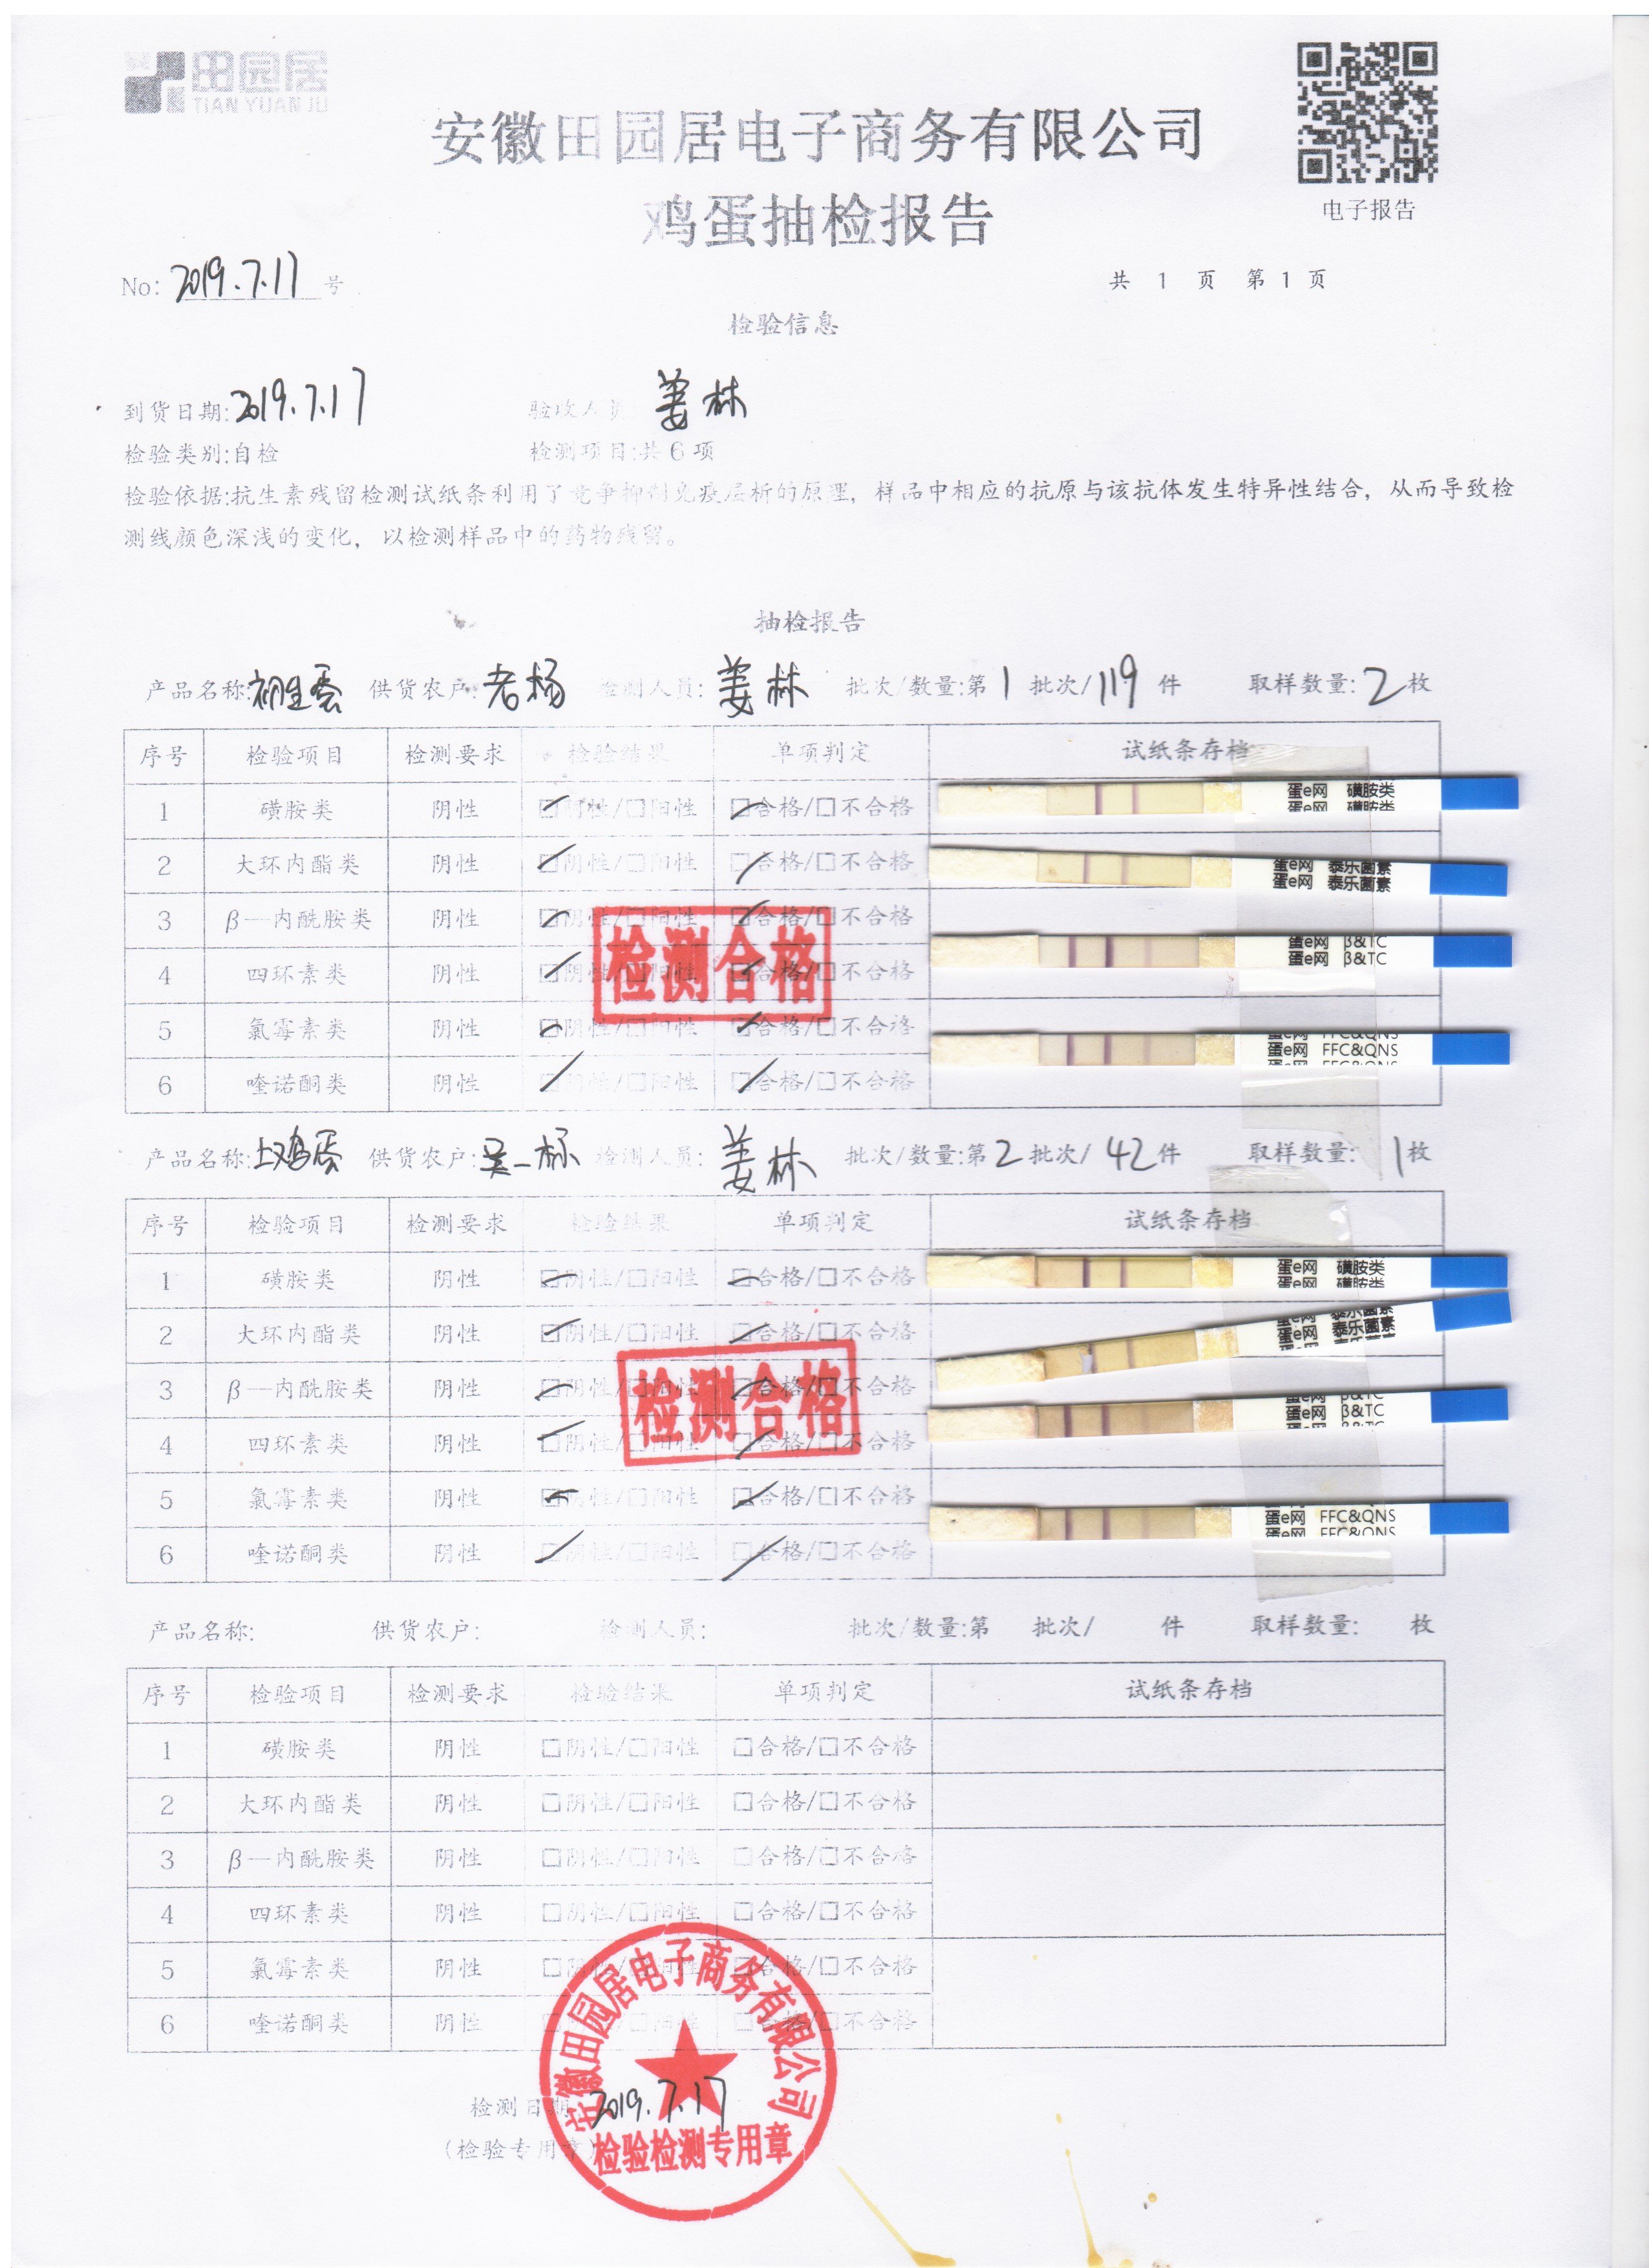 田园居
TIAN YUAN JU
安徽田园居电子商务有限公司
鸡蛋抽检报告
电子报告
No: 2019.7.17 号
共 1 页 第 1 页
检验信息
到货日期:2019.7.17 验收人员 姜林
检验类别:自检 检测项目:共 6 项
检验依据:抗生素残留检测试纸条利用了竞争抑制免疫层析的原理，样品中相应的抗原与该抗体发生特异性结合，从而导致检
测线颜色深浅的变化，以检测样品中的药物残留。
抽检报告
产品名称:初生蛋 供货农户:老杨 检测人员:姜林 批次/数量:第 1 批次/119 件 取样数量:2枚
序号 检验项目 检测要求 检验结果 单项判定 试纸条存档
1 磺胺类 阴性 ☑阴性/□阳性 ☑合格/□不合格 蛋e网 磺胺类
蛋e网 磺胺类
2 大环内酯类 阴性 ☑阴性/□阳性 ☑合格/□不合格 蛋e网 泰乐菌素
蛋e网 泰乐菌素
3 β—内酰胺类 阴性 ☑阴性/□阳性 ☑合格/□不合格 蛋e网 β&TC
蛋e网 β&TC
4 四环素类 阴性 ☑阴性/□阳性 ☑合格/□不合格
检测合格
5 氯霉素类 阴性 ☑阴性/□阳性 ☑合格/□不合格 蛋e网 FFC&QNS
蛋e网 FFC&QNS
蛋e网 FFC&QNS
6 喹诺酮类 阴性 ☑阴性/□阳性 ☑合格/□不合格
产品名称:土鸡蛋 供货农户: 检测人员:姜林 批次/数量:第2批次/42件 取样数量:1枚
序号 检验项目 检测要求 检验结果 单项判定 试纸条存档
1 磺胺类 阴性 ☑阴性/□阳性 ☑合格/□不合格 蛋e网 磺胺类
蛋e网 磺胺类
2 大环内酯类 阴性 ☑阴性/□阳性 ☑合格/□不合格 蛋e网 泰乐菌素
蛋e网 泰乐菌素
3 β—内酰胺类 阴性 ☑阴性/□阳性 ☑合格/□不合格 蛋e网 β&TC
蛋e网 β&TC
蛋e网 β&TC
检测合格
4 四环素类 阴性 ☑阴性/□阳性 ☑合格/□不合格
5 氯霉素类 阴性 ☑阴性/□阳性 ☑合格/□不合格 蛋e网 FFC&QNS
蛋e网 FFC&QNS
6 喹诺酮类 阴性 ☑阴性/□阳性 ☑合格/□不合格
产品名称: 供货农户: 检测人员: 批次/数量:第 批次/ 件 取样数量: 枚
序号 检验项目 检测要求 检验结果 单项判定 试纸条存档
1 磺胺类 阴性 □阴性/□阳性 □合格/□不合格
2 大环内酯类 阴性 □阴性/□阳性 □合格/□不合格
3 β—内酰胺类 阴性 □阴性/□阳性 □合格/□不合格
4 四环素类 阴性 □阴性/□阳性 □合格/□不合格
5 氯霉素类 阴性 □阴性/□阳性 □合格/□不合格
6 喹诺酮类 阴性 □阴性/□阳性 □合格/□不合格
安徽田园居电子商务有限公司
检测日期 2019.7.17
(检验专用章)
检验检测专用章